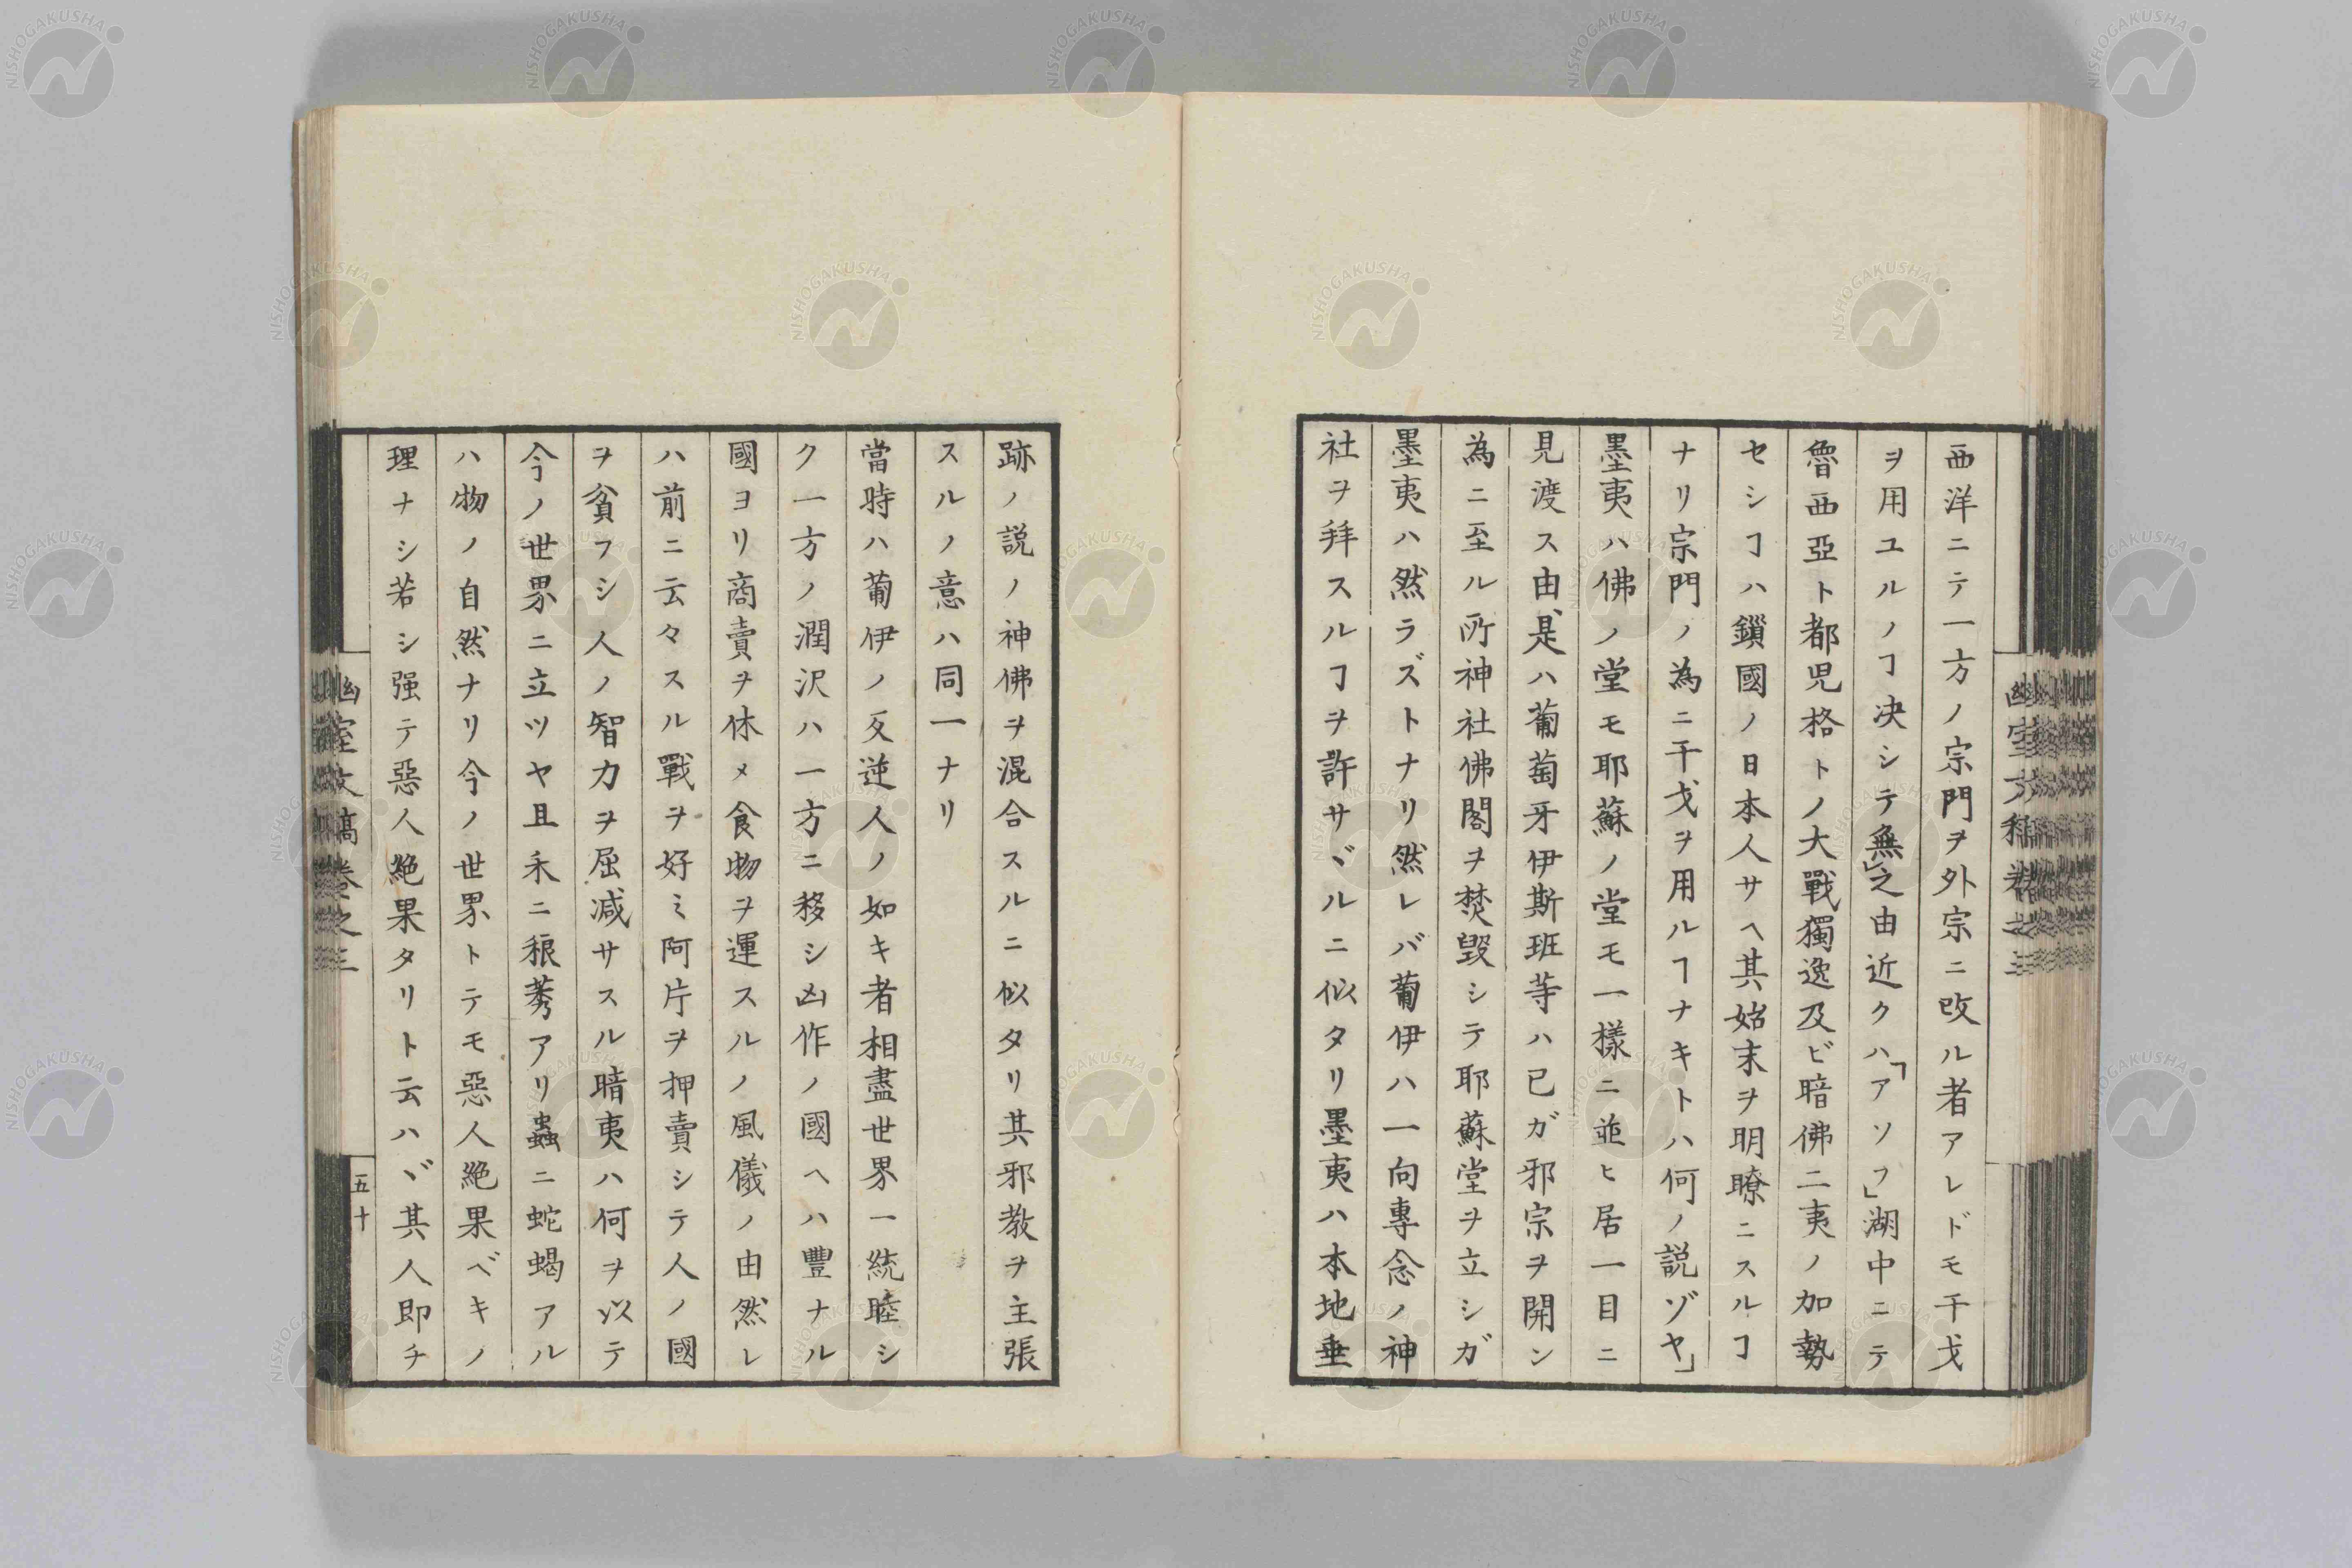 西洋ニテ一方ノ宗門ヲ外宗ニ改ル者アレドモ干戈
ヲ用ユルノヿ决シテ無」之由近クハ「アソフ」湖中ニテ
魯西亞ト都児格トノ大戰獨逸及ビ暗佛二夷ノ加勢
セシヿハ鎻國ノ日本人サヘ其始末ヲ明瞭ニスルヿ
ナリ宗門ノ為ニ干戈ヲ用ルヿナキトハ何ノ説ゾヤ」
墨夷ハ佛ノ堂モ耶蘇ノ堂モ一樣ニ並ヒ居一目ニ
見渡ス由是ハ葡萄牙伊斯班等ハ已ガ邪宗ヲ開ン
為ニ至ル所神社佛閣ヲ焚毀シテ耶蘇堂ヲ立シガ
墨夷ハ然ラズトナリ然レバ葡伊ハ一向專念ノ神
社ヲ拜スルヿヲ許サヾルニ似タリ墨夷ハ本地垂
幽室文稿卷之三
跡ノ説ノ神佛ヲ混合スルニ似タリ其邪教ヲ主張
スルノ意ハ同一ナリ
當時ハ葡伊ノ反逆人ノ如キ者相盡世界一統睦シ
ク一方ノ潤沢ハ一方ニ移シ凶作ノ國ヘハ豐ナル
國ヨリ商賣ヲ休メ食物ヲ運スルノ風儀ノ由然レ
ハ前ニ云々スル戰ヲ好ミ阿片ヲ押賣シテ人ノ國
ヲ貧フシ人ノ智力ヲ屈减サスル暗夷ハ何ヲ以テ
今ノ世界ニ立ツヤ且禾ニ稂莠アリ蟲ニ蛇蝎アル
ハ物ノ自然ナリ今ノ世界トテモ惡人絶果ベキノ
理ナシ若シ强テ惡人絶果タリト云ハヾ其人即チ
幽室文稿卷之三
五十
NISHOGAKUSHA